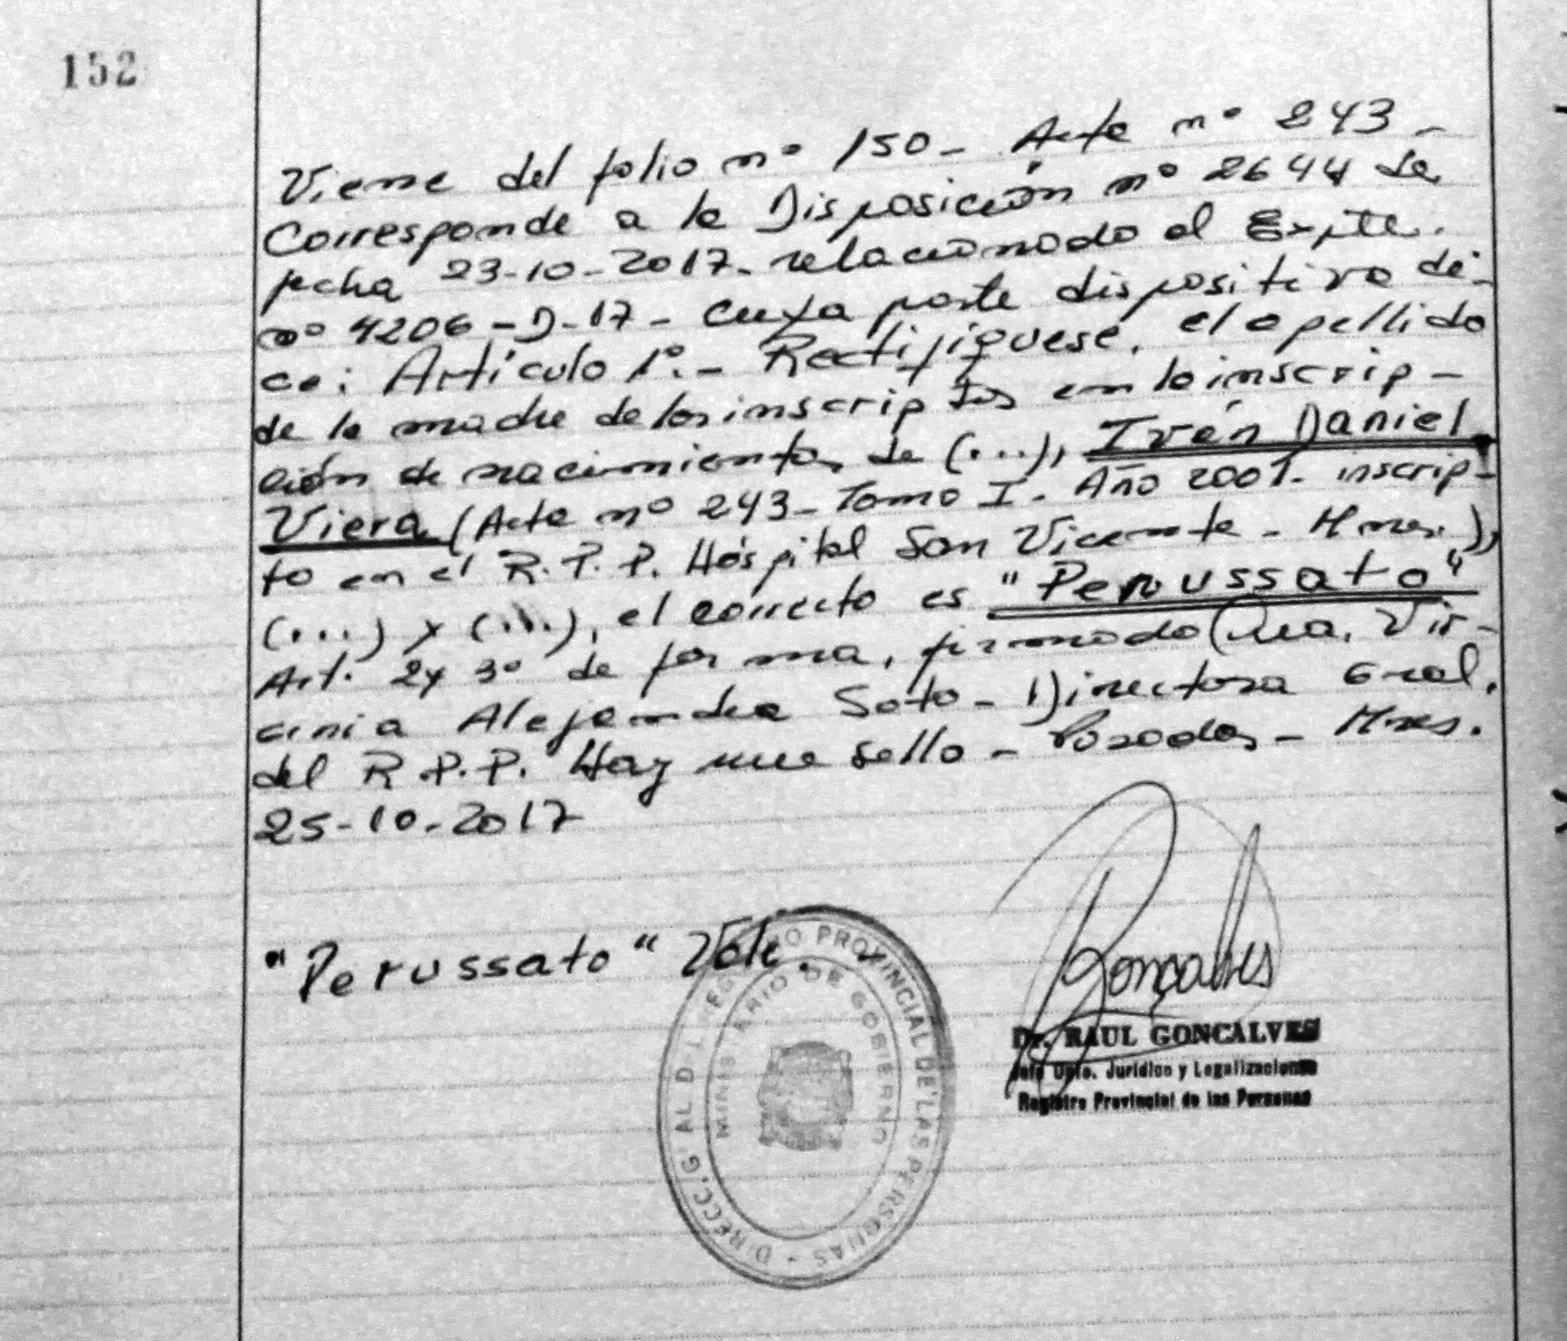 152
Viene del folio nº 150 - Acta nº 243 -
Corresponde a la Disposición nº 2644 de
fecha 23-10-2017- relacionado al Expte.
nº 4206-D-17- cuya parte dispositiva di-
ce: Artículo 1º.- Rectifíquese, el apellido
de la madre de los inscriptos en la inscrip-
ción de nacimientos de (...), Iván Daniel
Viera (Acta nº 243- Tomo I- Año 2001- inscrip-
to en el R.P.P. Hospital San Vicente - Mnes.),
(...) y (...), el correcto es "Perussato"
Art. 2 y 3º de forma, firmado Vir-
ginia Alejandra Soto - Directora Gral.
del R.P.P. Hay un sello - Posadas - Mnes.
25-10-2017
"Perussato" Vale.
DIRECC. G AL. D L REG O PROVINCIAL DE LAS PERSONAS -
MINIS ARIO DE GOBIERNO
Gonçalves
Dr. RAUL GONCALVES
Jefe Dpto. Jurídico y Legalizaciones
Registro Provincial de las Personas